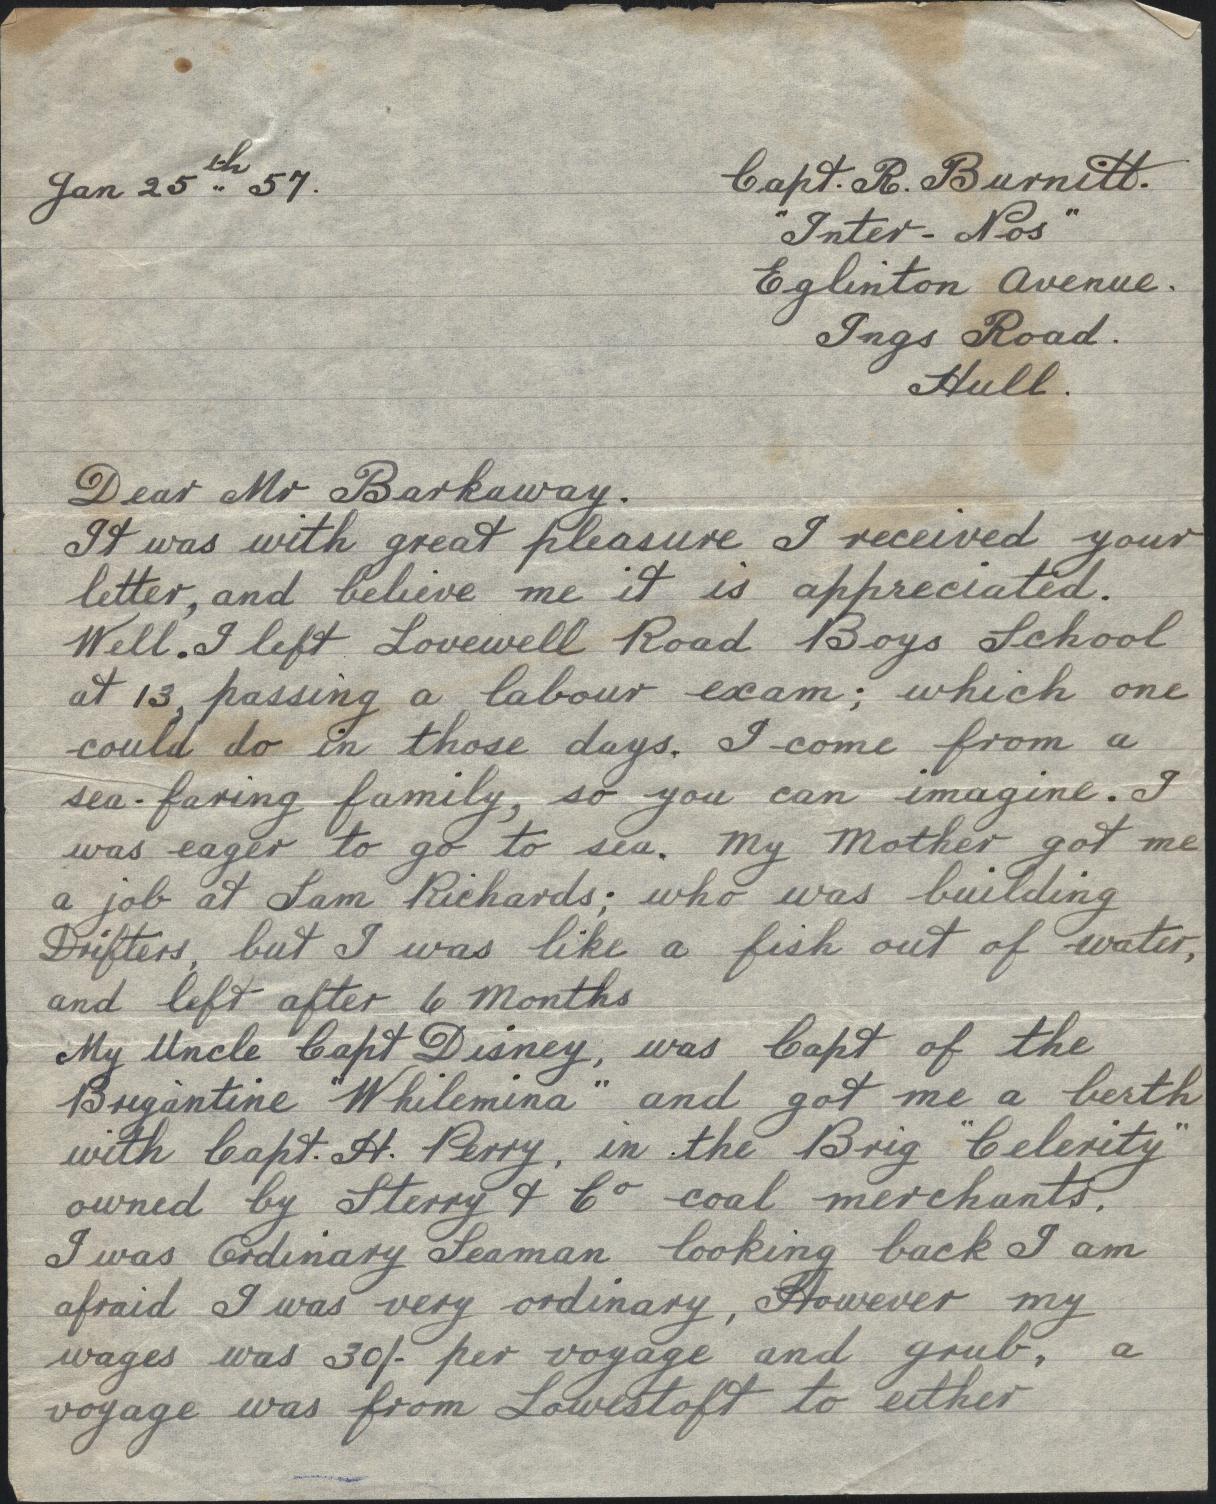 Jan 25th 57.
Capt. R. Burnitt.
"Inter-Nos"
Eglinton Avenue.
Ings Road.
Hull.
Dear Mr Barkaway.
It was with great pleasure I received your
letter, and believe me it is appreciated.
Well. I left Lovewell Road Boys School
at 13, passing a labour exam; which one
could do in those days. I come from a
sea-faring family, so you can imagine. I
was eager to go to sea. My Mother got me
a job at Sam Richards; who was building
Drifters, but I was like a fish out of water,
and left after 6 Months
My Uncle Capt Disney, was Capt of the
Brigantine "Whilemina" and got me a berth
with Capt. H. Perry, in the Brig "Celerity"
owned by Sterry & Co coal merchants.
I was Ordinary Seaman looking back I am
afraid I was very ordinary, However my
wages was 30/- per voyage and grub, a
voyage was from Lowestoft to either